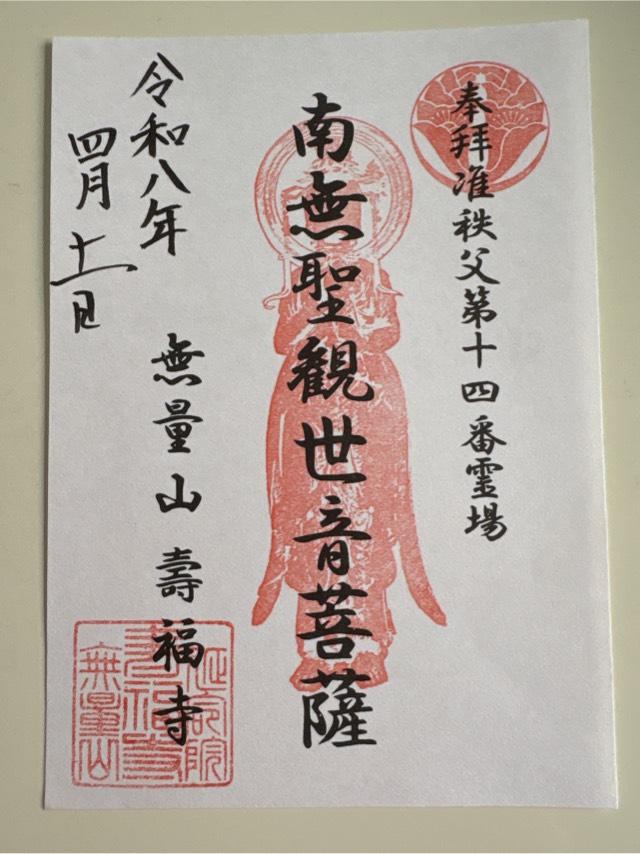 奉拝准秩父第十四番霊場
南無聖観世音菩薩
無量山 壽福寺
令和八年
四月十一日
無量山